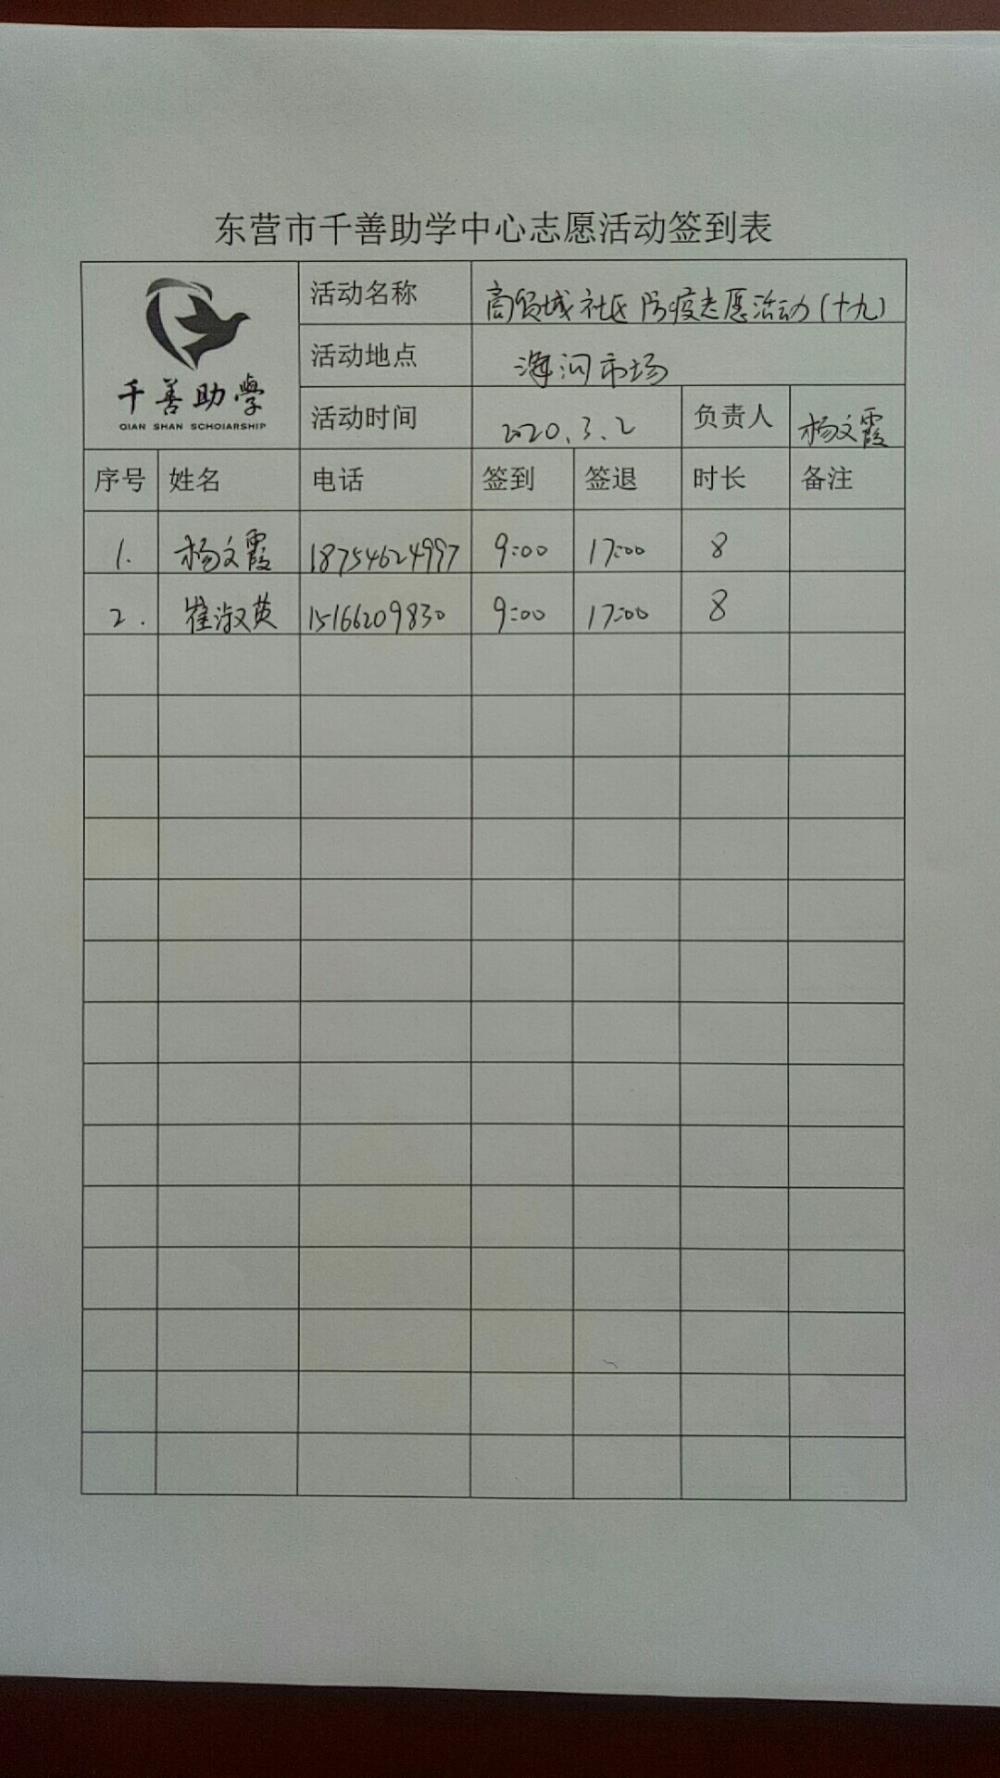 东营市千善助学中心志愿活动签到表
千善助學
QIAN SHAN SCHOIARSHIP
活动名称 商贸城社区防疫志愿活动(十九)
活动地点 海河市场
活动时间 2020.3.2 负责人 杨文霞
序号 姓名 电话 签到 签退 时长 备注
1. 杨文霞 18754624997 9:00 17:00 8
2. 崔淑英 15166209830 9:00 17:00 8